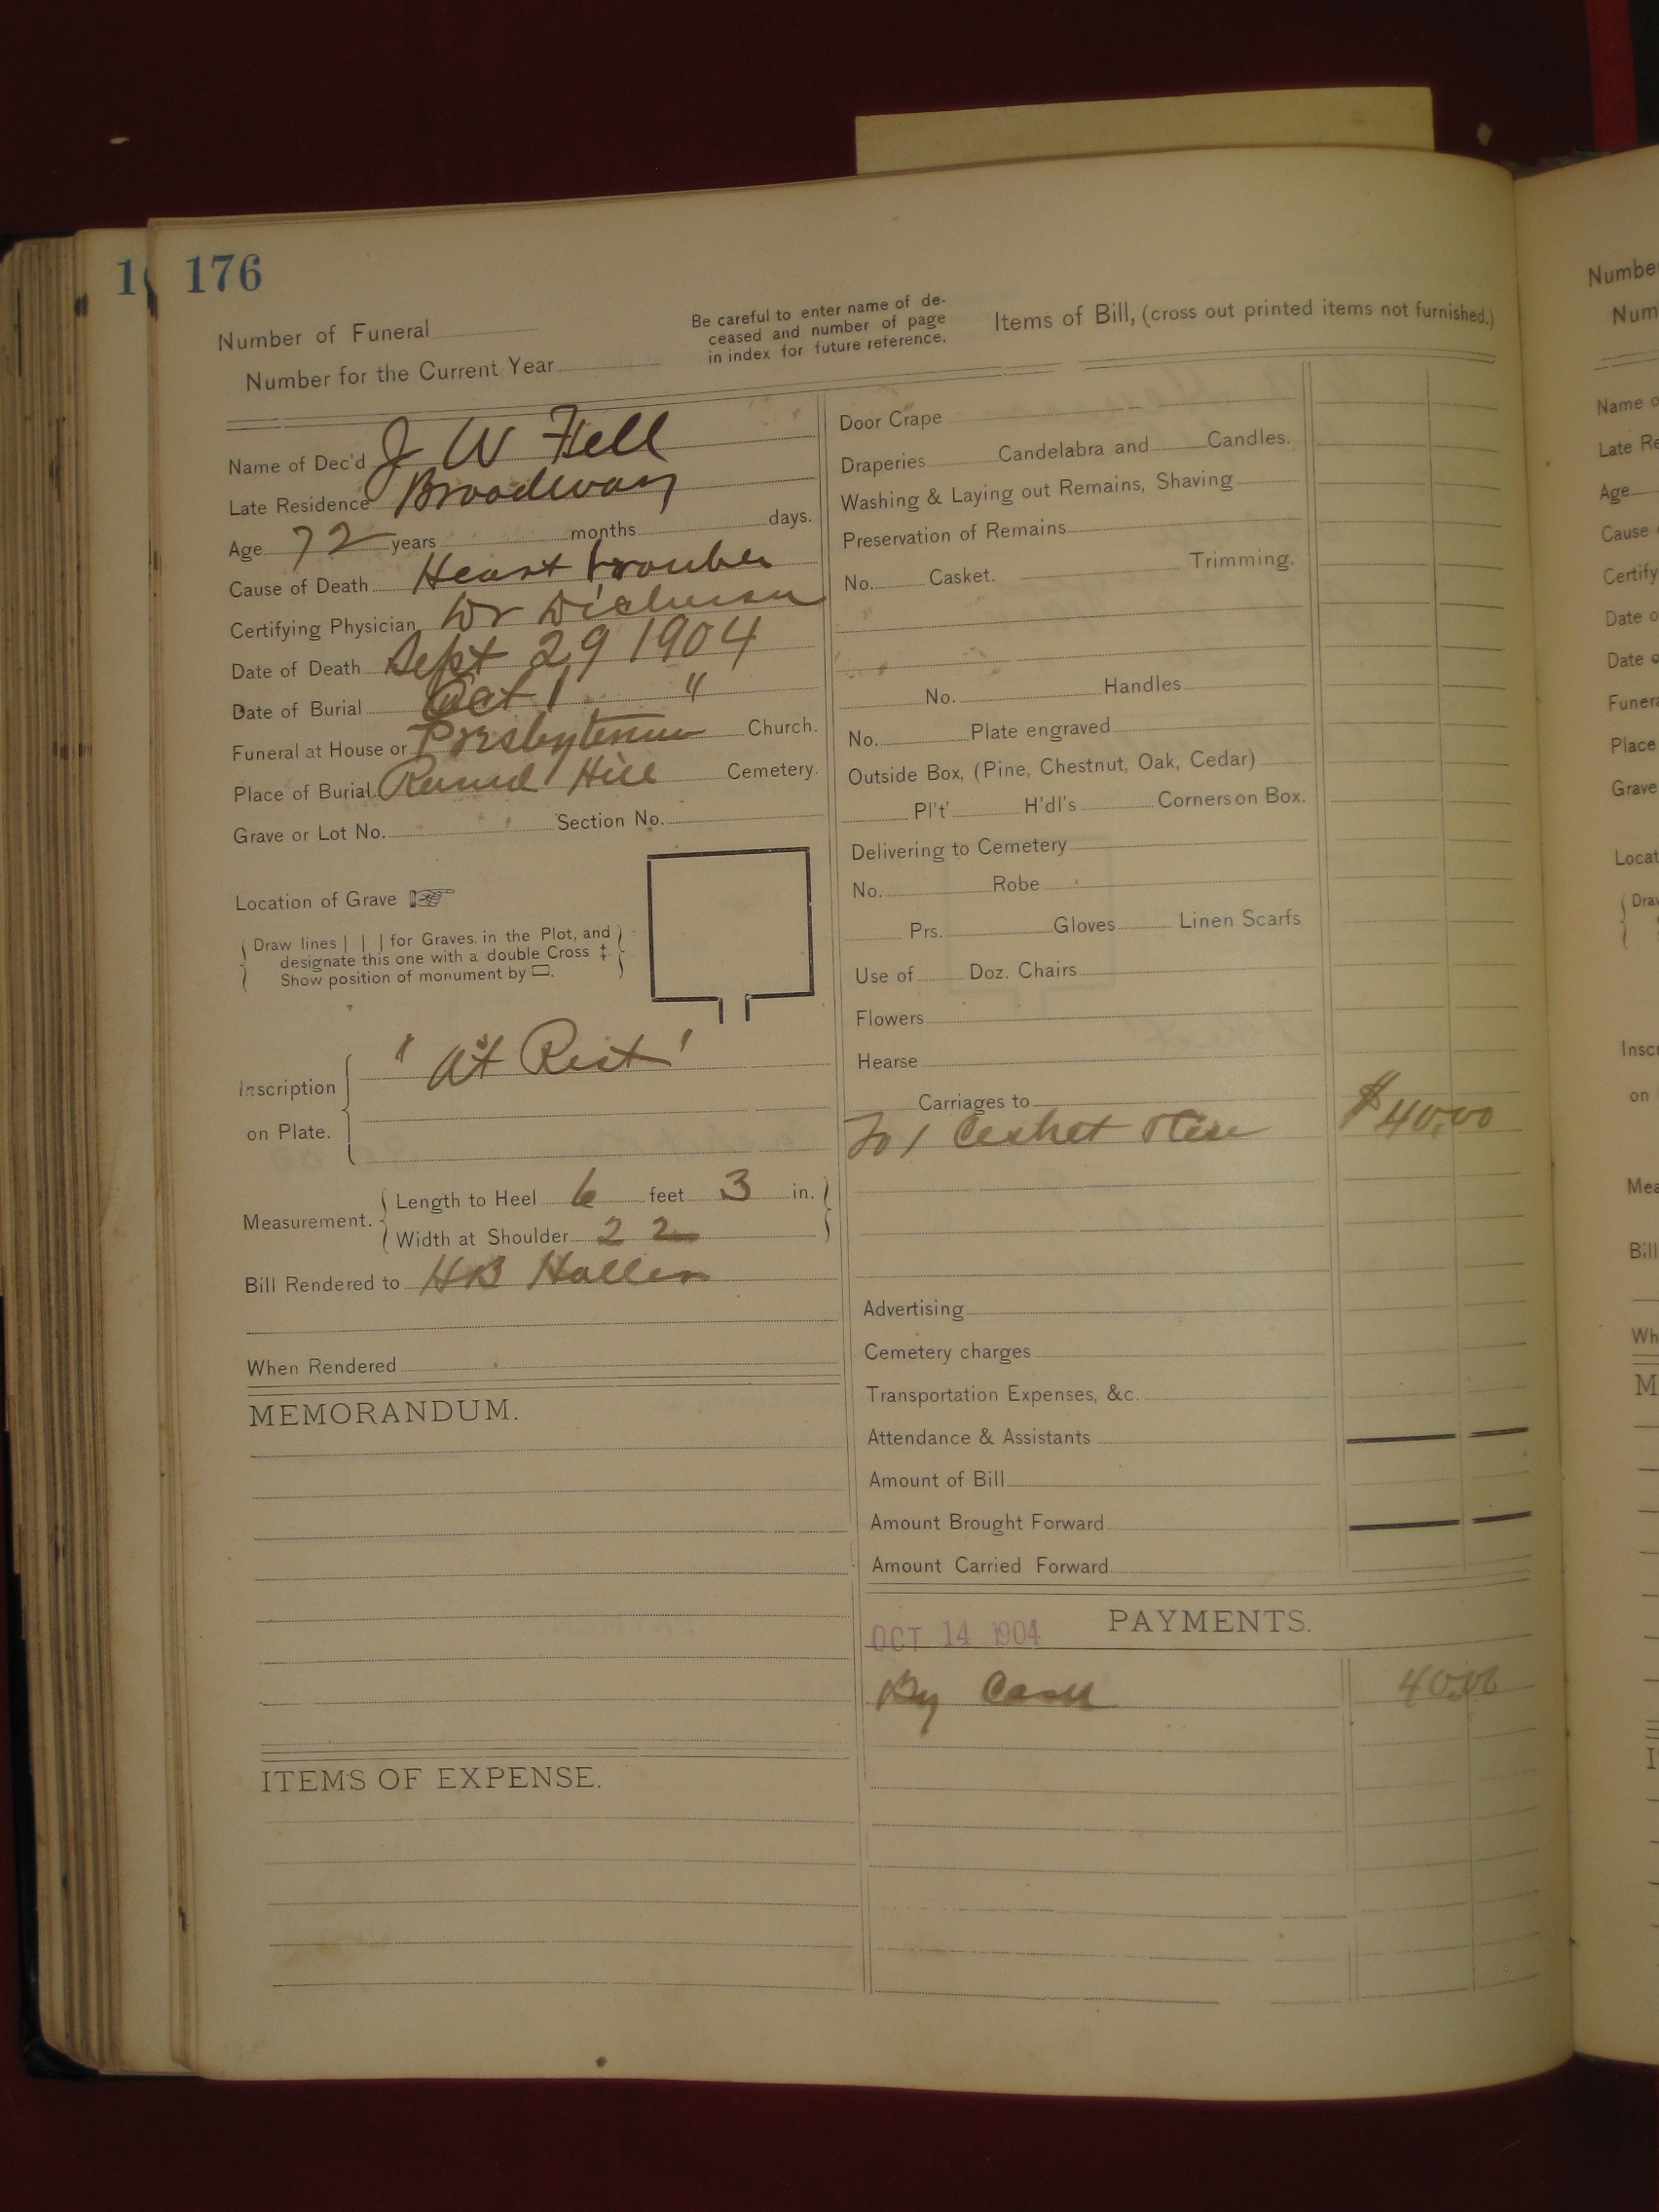 176
Number of Funeral
Number for the Current Year
Be careful to enter name of de-
ceased and number of page
in index for future reference.
Name of Dec'd J W Fell
Late Residence Broadway
Age 72 years months days.
Cause of Death Heart trouble
Certifying Physician Dr
Date of Death Sept 29 1904
Date of Burial Oct 1 "
Funeral at House or Presbyterian Church.
Place of Burial Round Hill Cemetery.
Grave or Lot No. Section No.
Location of Grave
Draw lines | | | for Graves in the Plot, and
designate this one with a double Cross ‡.
Show position of monument by ▭.
Inscription
on Plate.
"At Rest"
Measurement.
Length to Heel 6 feet 3 in.
Width at Shoulder 22
Bill Rendered to HB
When Rendered
MEMORANDUM.
ITEMS OF EXPENSE.
Items of Bill, (cross out printed items not furnished.)
Door Crape
Draperies Candelabra and Candles.
Washing & Laying out Remains, Shaving
Preservation of Remains
No. Casket. Trimming.
No. Handles
No. Plate engraved
Outside Box, (Pine, Chestnut, Oak, Cedar)
Pl't' H'dl's Corners on Box.
Delivering to Cemetery
No. Robe
Prs. Gloves Linen Scarfs
Use of Doz. Chairs
Flowers
Hearse
Carriages to
To 1 Casket $40.00
Advertising
Cemetery charges
Transportation Expenses, &c.
Attendance & Assistants
Amount of Bill
Amount Brought Forward
Amount Carried Forward
OCT 14 1904 PAYMENTS.
By Cash 40.00
Number
Num
Name o
Late Re
Age
Cause
Certify
Date o
Date o
Funera
Place
Grave
Locat
Draw
Inscr
on
Mea
Bill
Wh
M
I